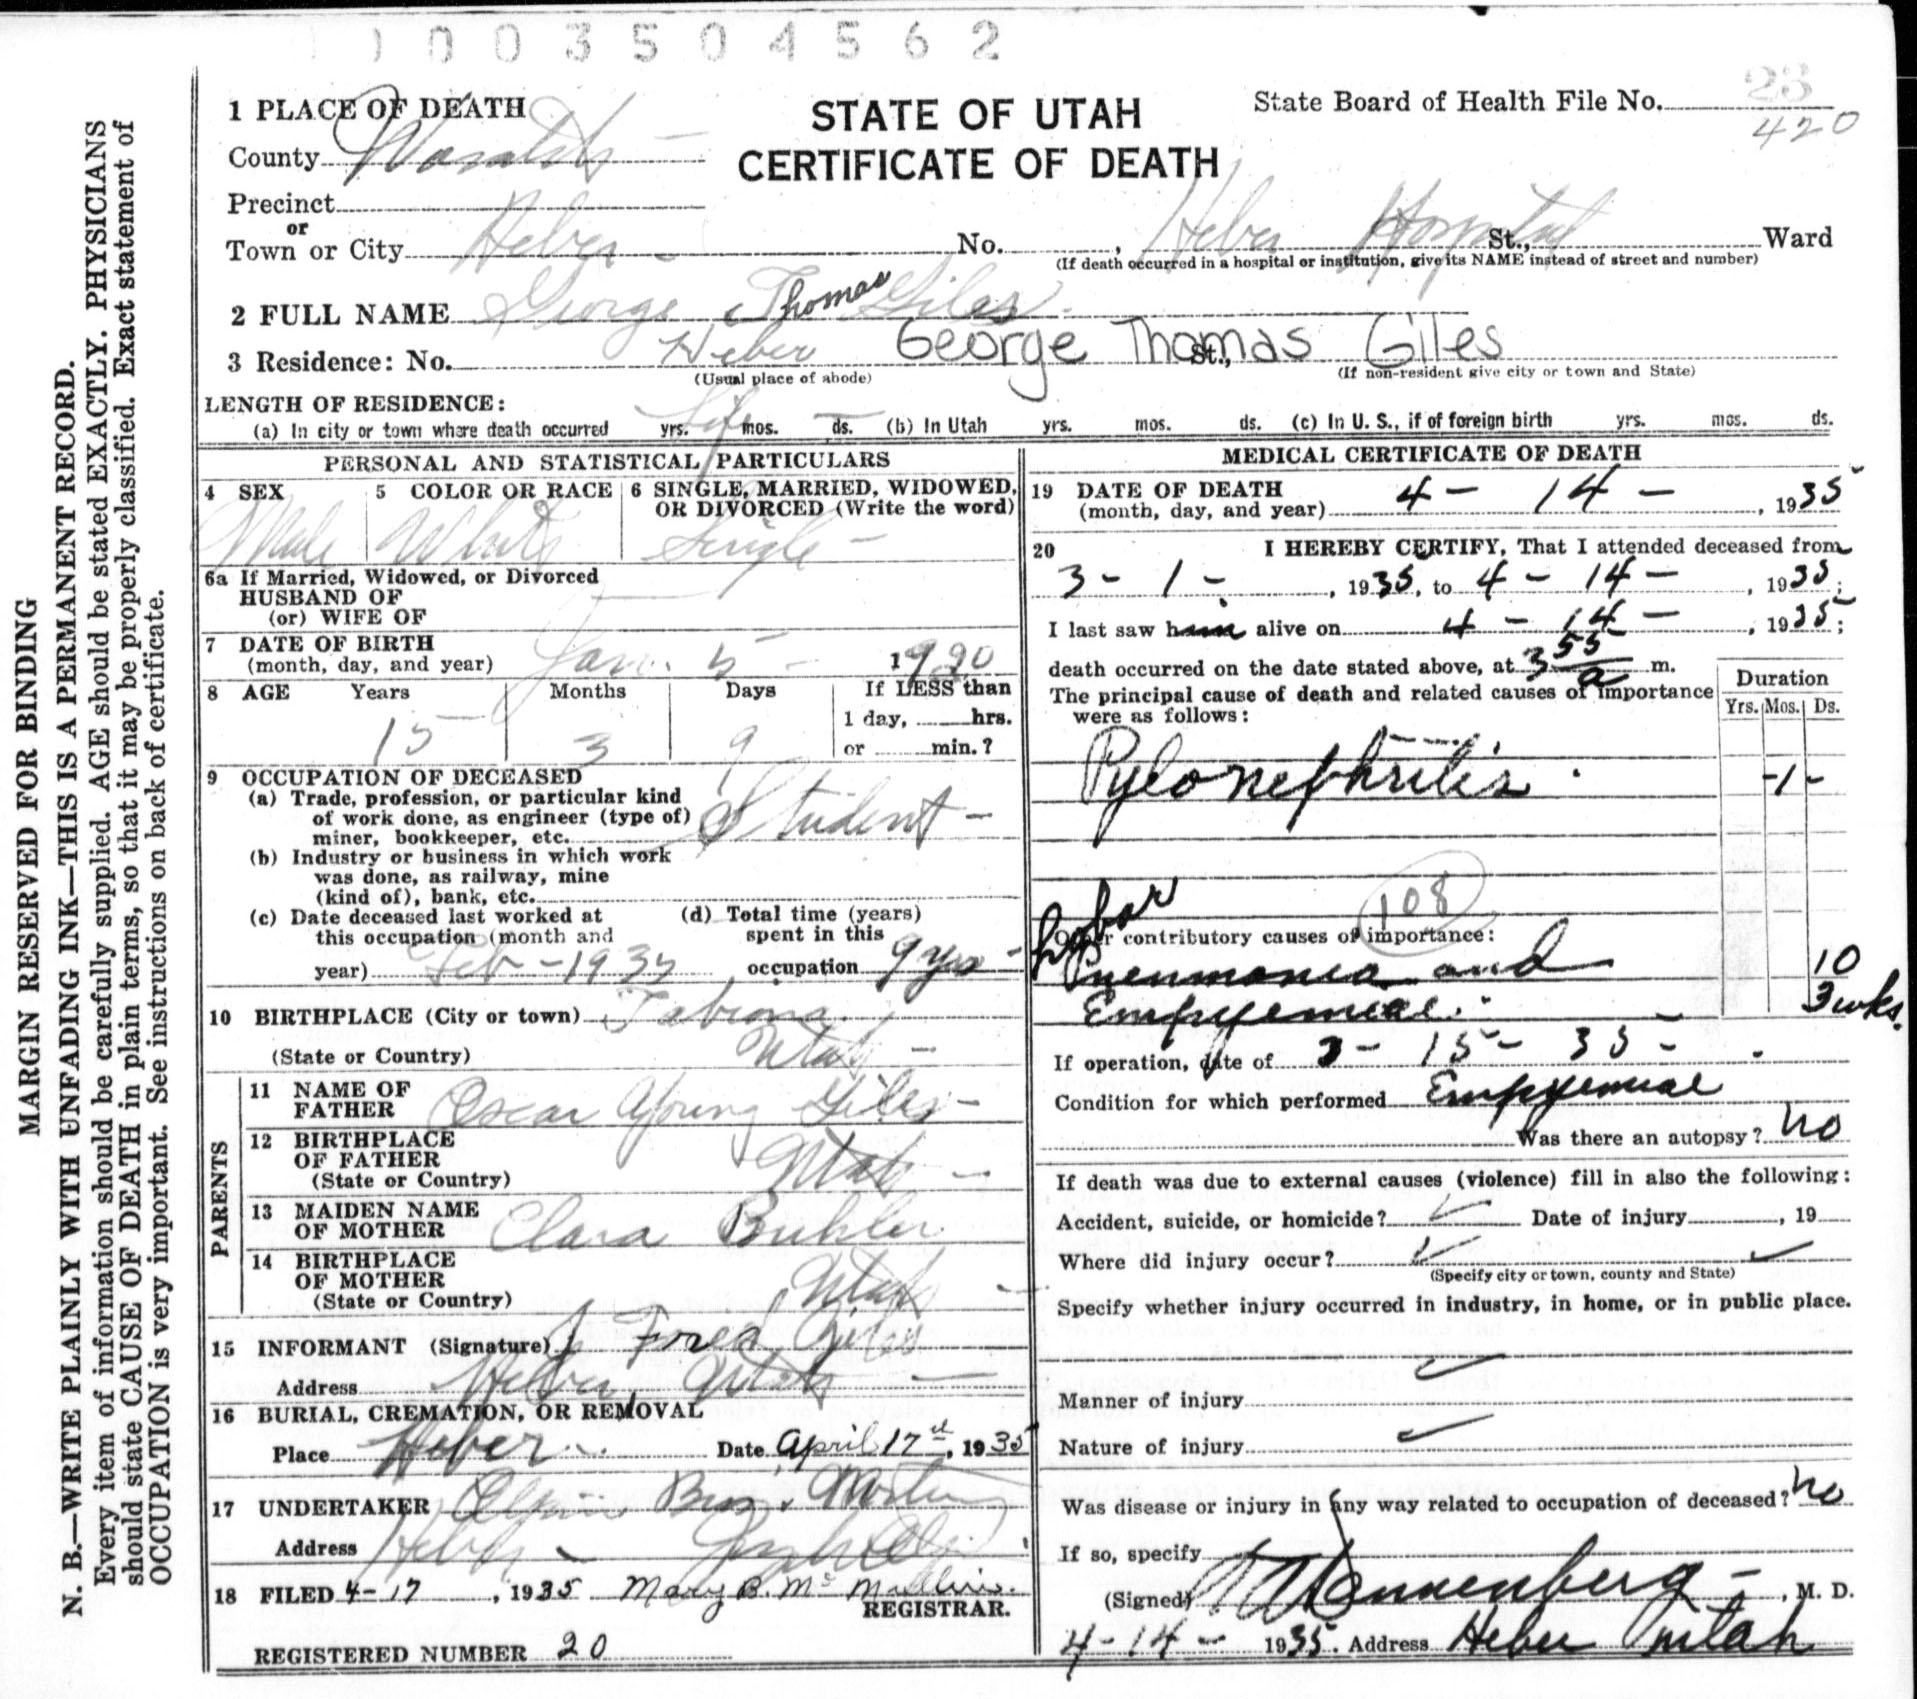 0 0 3 5 0 4 5 6 2
MARGIN RESERVED FOR BINDING
N. B.—WRITE PLAINLY WITH UNFADING INK—THIS IS A PERMANENT RECORD.
Every item of information should be carefully supplied. AGE should be stated EXACTLY. PHYSICIANS
should state CAUSE OF DEATH in plain terms, so that it may be properly classified. Exact statement of
OCCUPATION is very important. See instructions on back of certificate.
1 PLACE OF DEATH
STATE OF UTAH
CERTIFICATE OF DEATH
State Board of Health File No. 23
420
County Wasatch
Precinct
or
Town or City Heber No. , Heber Hospital St., Ward
(If death occurred in a hospital or institution, give its NAME instead of street and number)
2 FULL NAME George Thomas Giles
George Thomas Giles
3 Residence: No. Heber St.,
(Usual place of abode) (If non-resident give city or town and State)
LENGTH OF RESIDENCE:
(a) In city or town where death occurred Life yrs. mos. ds. (b) In Utah yrs. mos. ds. (c) In U. S., if of foreign birth yrs. mos. ds.
PERSONAL AND STATISTICAL PARTICULARS
4 SEX 5 COLOR OR RACE 6 SINGLE, MARRIED, WIDOWED,
OR DIVORCED (Write the word)
Male White Single
6a If Married, Widowed, or Divorced
HUSBAND OF
(or) WIFE OF
7 DATE OF BIRTH
(month, day, and year) Jan. 5 - 1920
8 AGE Years Months Days If LESS than
1 day, hrs.
15 3 9 or min.?
9 OCCUPATION OF DECEASED
(a) Trade, profession, or particular kind
of work done, as engineer (type of)
miner, bookkeeper, etc. Student -
(b) Industry or business in which work
was done, as railway, mine
(kind of), bank, etc.
(c) Date deceased last worked at (d) Total time (years)
this occupation (month and spent in this
year) Feb - 1935 occupation 9 yrs -
10 BIRTHPLACE (City or town) Tabiona
(State or Country) Utah -
PARENTS
11 NAME OF
FATHER Oscar Young Giles -
12 BIRTHPLACE
OF FATHER
(State or Country) Utah -
13 MAIDEN NAME
OF MOTHER Clara Buhler
14 BIRTHPLACE
OF MOTHER
(State or Country) Utah -
15 INFORMANT (Signature) J. Fred Giles
Address Heber, Utah -
16 BURIAL, CREMATION, OR REMOVAL
Place Heber Date April 17, 1935
17 UNDERTAKER Olpin Bros.
Address Heber -
18 FILED 4-17, 1935 Mary B. McMullin.
REGISTRAR.
REGISTERED NUMBER 20
MEDICAL CERTIFICATE OF DEATH
19 DATE OF DEATH
(month, day, and year) 4 - 14 - , 1935
20 I HEREBY CERTIFY, That I attended deceased from
3 - 1 - , 1935, to 4 - 14 - , 1935;
I last saw him alive on 4 - 14 - , 1935;
death occurred on the date stated above, at 3 55 a m.
The principal cause of death and related causes of importance
were as follows:
Duration
Yrs. Mos. Ds.
Pyelonephritis. -1-
108
Other contributory causes of importance:
Lobar
Pneumonia and 10
Empyemiae. 3 wks.
If operation, date of 3 - 15 - 35 -
Condition for which performed Empyemiae
Was there an autopsy? No
If death was due to external causes (violence) fill in also the following:
Accident, suicide, or homicide? Date of injury , 19
Where did injury occur?
(Specify city or town, county and State)
Specify whether injury occurred in industry, in home, or in public place.
Manner of injury
Nature of injury
Was disease or injury in any way related to occupation of deceased? No
If so, specify
(Signed) Dannenberg - , M. D.
4-14- 1935. Address Heber Utah